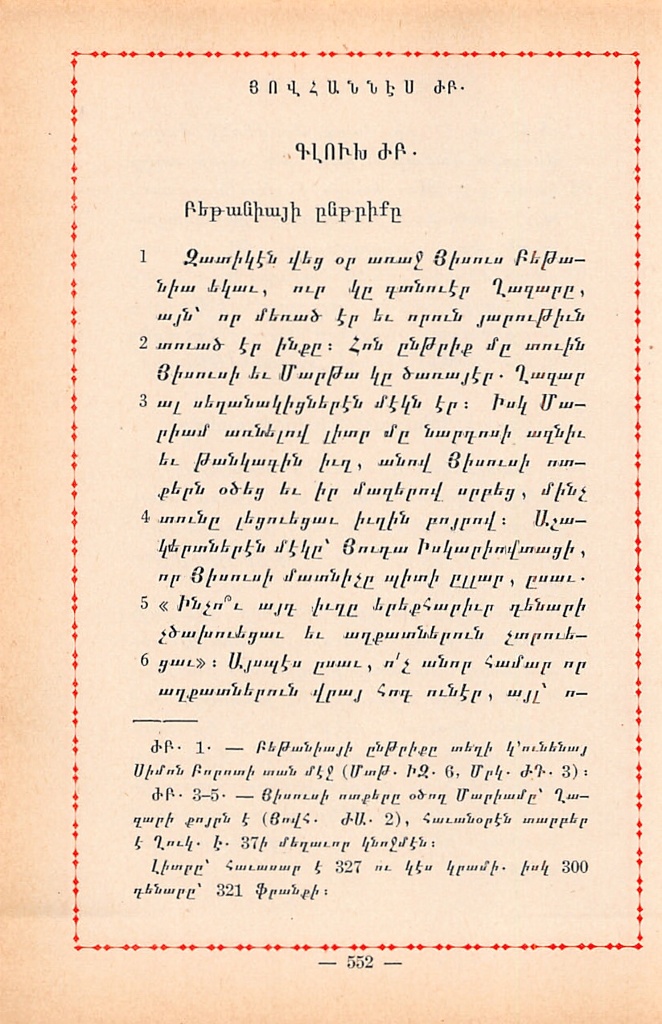 ՅՈՎՀԱՆՆԷՍ ԺԲ.
ԳԼՈՒԽ ԺԲ.
Բեթանիայի ընթրիքը
1 Զատիկէն վեց օր առաջ Յիսուս Բեթա-
նիա եկաւ, ուր կը գտնուէր Ղազարը,
այն՝ որ մեռած էր եւ որուն յարութիւն
2 տուած էր ինքը։ Հոն ընթրիք մը տուին
Յիսուսի եւ Մարթա կը ծառայէր. Ղազար
3 ալ սեղանակիցներէն մէկն էր։ Իսկ Մա-
րիամ առնելով լիտր մը նարդոսի ազնիւ
եւ թանկագին իւղ, անով Յիսուսի ոտ-
քերն օծեց եւ իր մազերով սրբեց, մինչ
4 տունը լեցուեցաւ իւղին բոյրով։ Աշա-
կերտներէն մէկը՝ Յուդա Իսկարիովտացի,
որ Յիսուսի մատնիչը պիտի ըլլար, ըսաւ.
5 « Ինչո՞ւ այդ իւղը երեքհարիւր դենարի
չծախուեցաւ եւ աղքատներուն չտրուե-
6 ցաւ»։ Այսպէս ըսաւ, ո՛չ անոր համար որ
աղքատներուն վրայ հոգ ունէր, այլ՝ ո-
ԺԲ. 1. — Բեթանիայի ընթրիքը տեղի կ'ունենայ
Սիմոն Բորոտի տան մէջ (Մտթ. ԻԶ. 6, Մրկ. ԺԴ. 3)։
ԺԲ. 3-5. — Յիսուսի ոտքերը օծող Մարիամը՝ Ղա-
զարի քոյրն է (Յովհ. ԺԱ. 2), հաւանօրէն տարբեր
է Ղուկ. Է. 37ի մեղաւոր կնոջմէն։
Լիտրը՝ հաւասար է 327 ու կէս կրամի. իսկ 300
դենարը՝ 321 ֆրանքի։
— 552 —